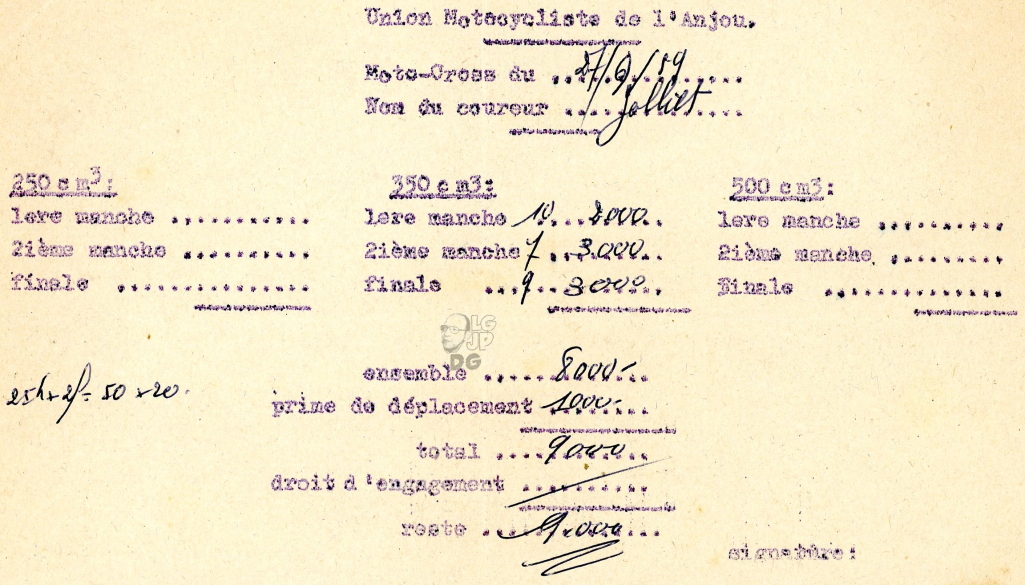 Union Motocycliste de l'Anjou.
Moto-Cross du 27/6/59
Nom du coureur Jolliet
250 c m3:
1ere manche ...........
2ième manche ..........
finale ..............
350 c m3:
1ere manche 10 2000
2ième manche 7 3.000
finale 9 3000
500 c m3:
1ere manche ..........
2ième manche ..........
Finale ..............
LG
JP
DG
ensemble 8000-
25h+2f= 50 +20.
prime de déplacement 1000-
total 9000
droit d'engagement ..........
reste 9.000
signature: